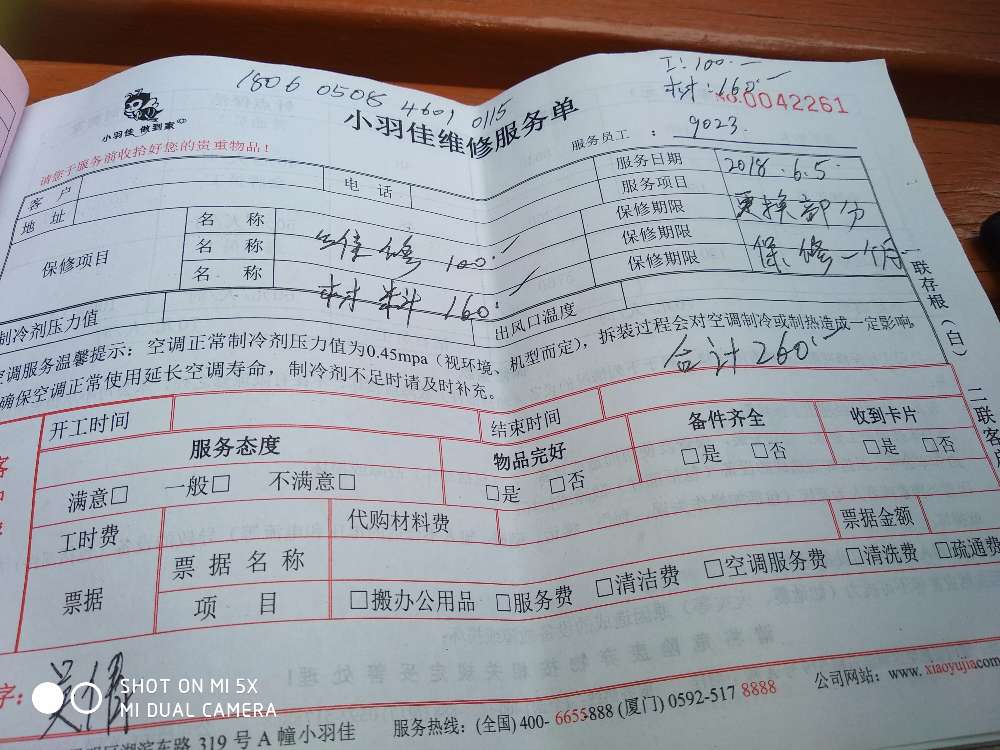 1806 0508 4601 0115
工:100.—
材:160.—
小羽佳 做到家
小羽佳维修服务单
No.0042261
请您于服务前收拾好您的贵重物品!
服务员工 : 9023.
客 户 电 话 服务日期 2018.6.5.
地 址 服务项目
保修项目 名 称 维修 100. 保修期限 更换部分
名 称 保修期限 保修一个月
名 称 材料 160. 保修期限
制冷剂压力值 出风口温度
空调服务温馨提示:空调正常制冷剂压力值为0.45mpa(视环境、机型而定),拆装过程会对空调制冷或制热造成一定影响。
确保空调正常使用延长空调寿命,制冷剂不足时请及时补充。
合计260.—
一联存根(白)
二联客户
开工时间 结束时间
服务态度 物品完好 备件齐全 收到卡片
满意□ 一般□ 不满意□ □是 □否 □是 □否 □是 □否
工时费 代购材料费 票据金额
票据 票据名称
项 目 □搬办公用品 □服务费 □清洁费 □空调服务费 □清洗费 □疏通费
字:
湖滨东路 319 号 A 幢小羽佳 服务热线:(全国) 400- 6655888 (厦门) 0592-517 8888 公司网站:www.xiaoyujia.com
SHOT ON MI 5X
MI DUAL CAMERA